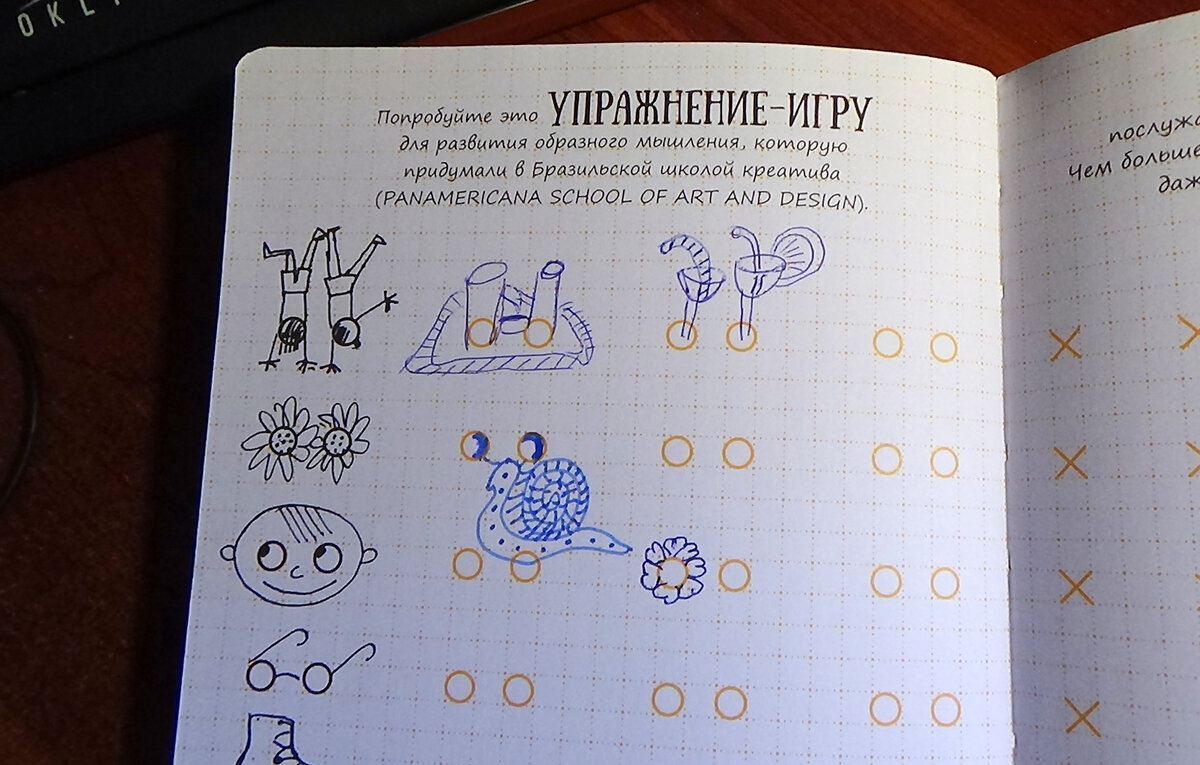 Попробуйте это УПРАЖНЕНИЕ-ИГРУ
для развития образного мышления, которую
придумали в Бразильской школой креатива
(PANAMERICANA SCHOOL OF ART AND DESIGN).
Чем больше